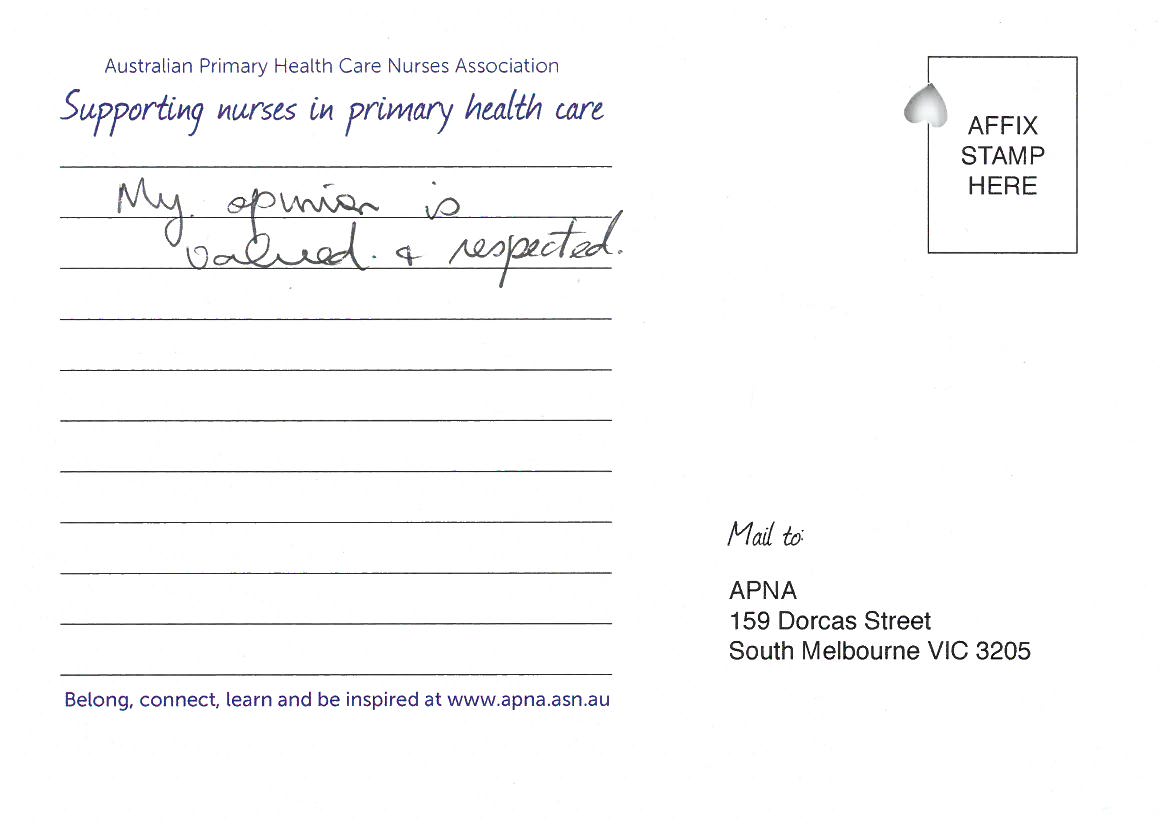 Australian Primary Health Care Nurses Association
Supporting nurses in primary health care
My opinion is
valued. & respected.
Belong, connect, learn and be inspired at www.apna.asn.au
AFFIX
STAMP
HERE
Mail to:
APNA
159 Dorcas Street
South Melbourne VIC 3205